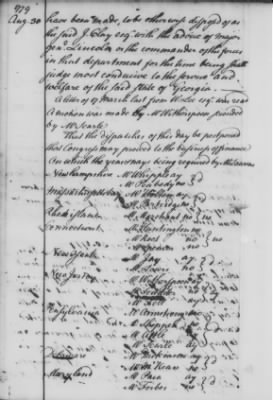 979
Aug. 30
have been made, to be otherways disposed of as
the said J. Clay esqr. with the advice of major
genl. Lincoln or the commander of the forces
in that department for the time being shall
judge most conducive to the service and
welfare of the said state of Georgia.
A letter of 17 March last from Wm Lee esqr. was read
A motion was made by Mr Witherspoon, seconded
by Mr Searle
That the dispatches of this day be postponed
that Congress may proceed to the business of finance
On which the yeas & nays being required by
New hampshire Mr Whipple ay
Mr Peabody no
Massachusetts bay Mr Holten ay
Mr Partridge
Rhode island Mr Marchant no
Connecticut Mr Huntington
Mr Root no
Mr Spencer no
New York Mr Jay ay
Mr Lewis no
New Jersey Mr Witherspoon
Mr Scudder
Mr Fell
Pensylvania Mr Armstrong no
Mr Shippen
Mr Atlee
Mr Searle ay
Delaware Mr Dickinson ay
Mr McKean no
Maryland Mr Paca ay
Mr Forbes no